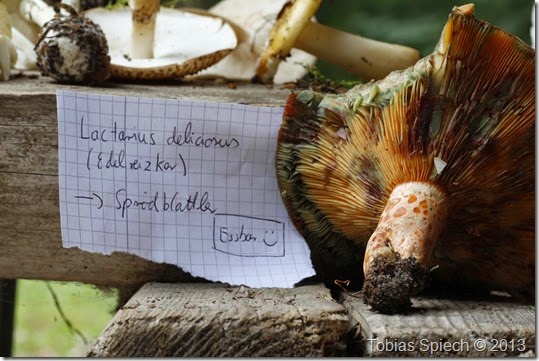 Lactarius deliciosus
(Edelreizker)
→ Sprödblättler
Essbar ☺
Tobias Spiech © 2013